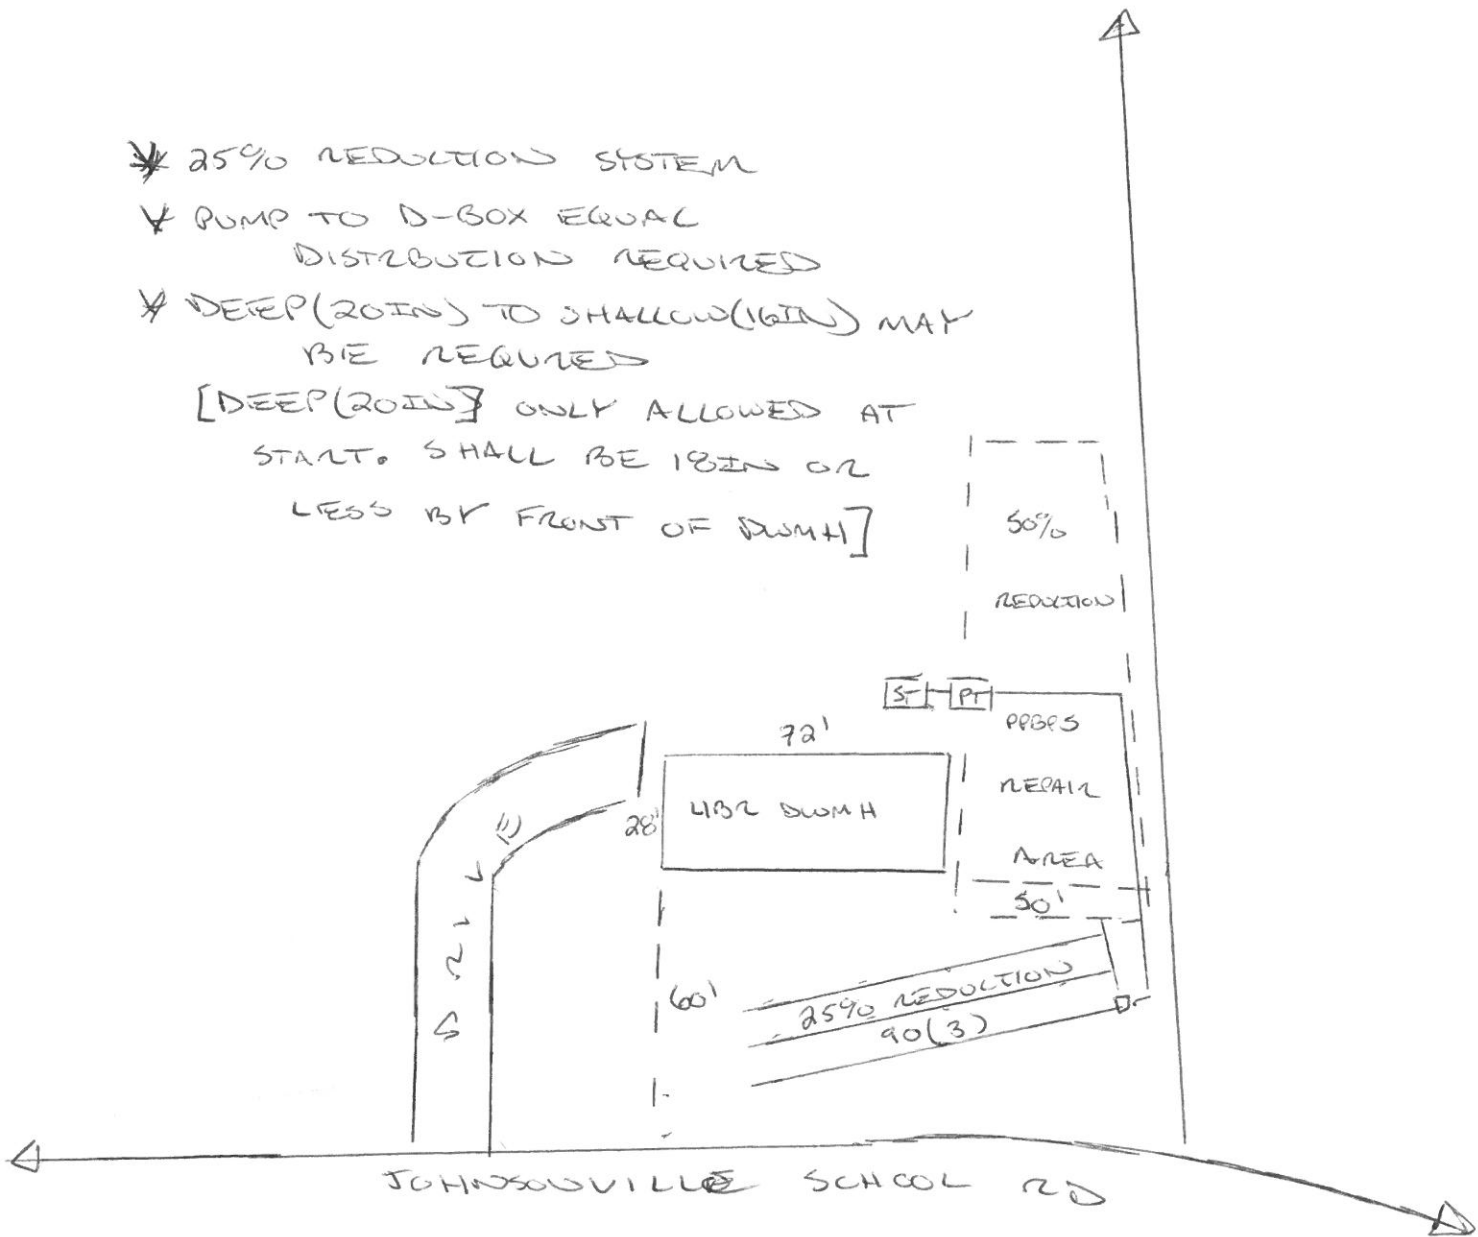 * 25% REDUCTION SYSTEM
* PUMP TO D-BOX EQUAL
DISTRBUTION REQUIRED
* DEEP(20IN) TO SHALLOW(16IN) MAY
BE REQURED
[DEEP(20IN)] ONLY ALLOWED AT
START. SHALL BE 18IN OR
LESS BY FRONT OF DWMH]
50%
REDUCTION
ST
PT
PPBPS
REPAIR
AREA
50'
72'
28'
4BR DWMH
DRIVE
60'
25% REDUCTION
90(3)
JOHNSONVILLE SCHOOL RD